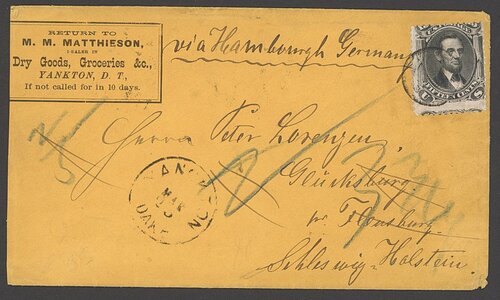 RETURN TO
M. M. MATTHIESON,
DEALER IN
Dry Goods, Groceries &c.,
YANKTON, D. T.,
If not called for in 10 days.
via Hambourgh Germany
Herrn Peter Lorenzen,
Glücksburg
pr Flensburg
Schleswig-Holstein.
YANKTON
MAR
DAK